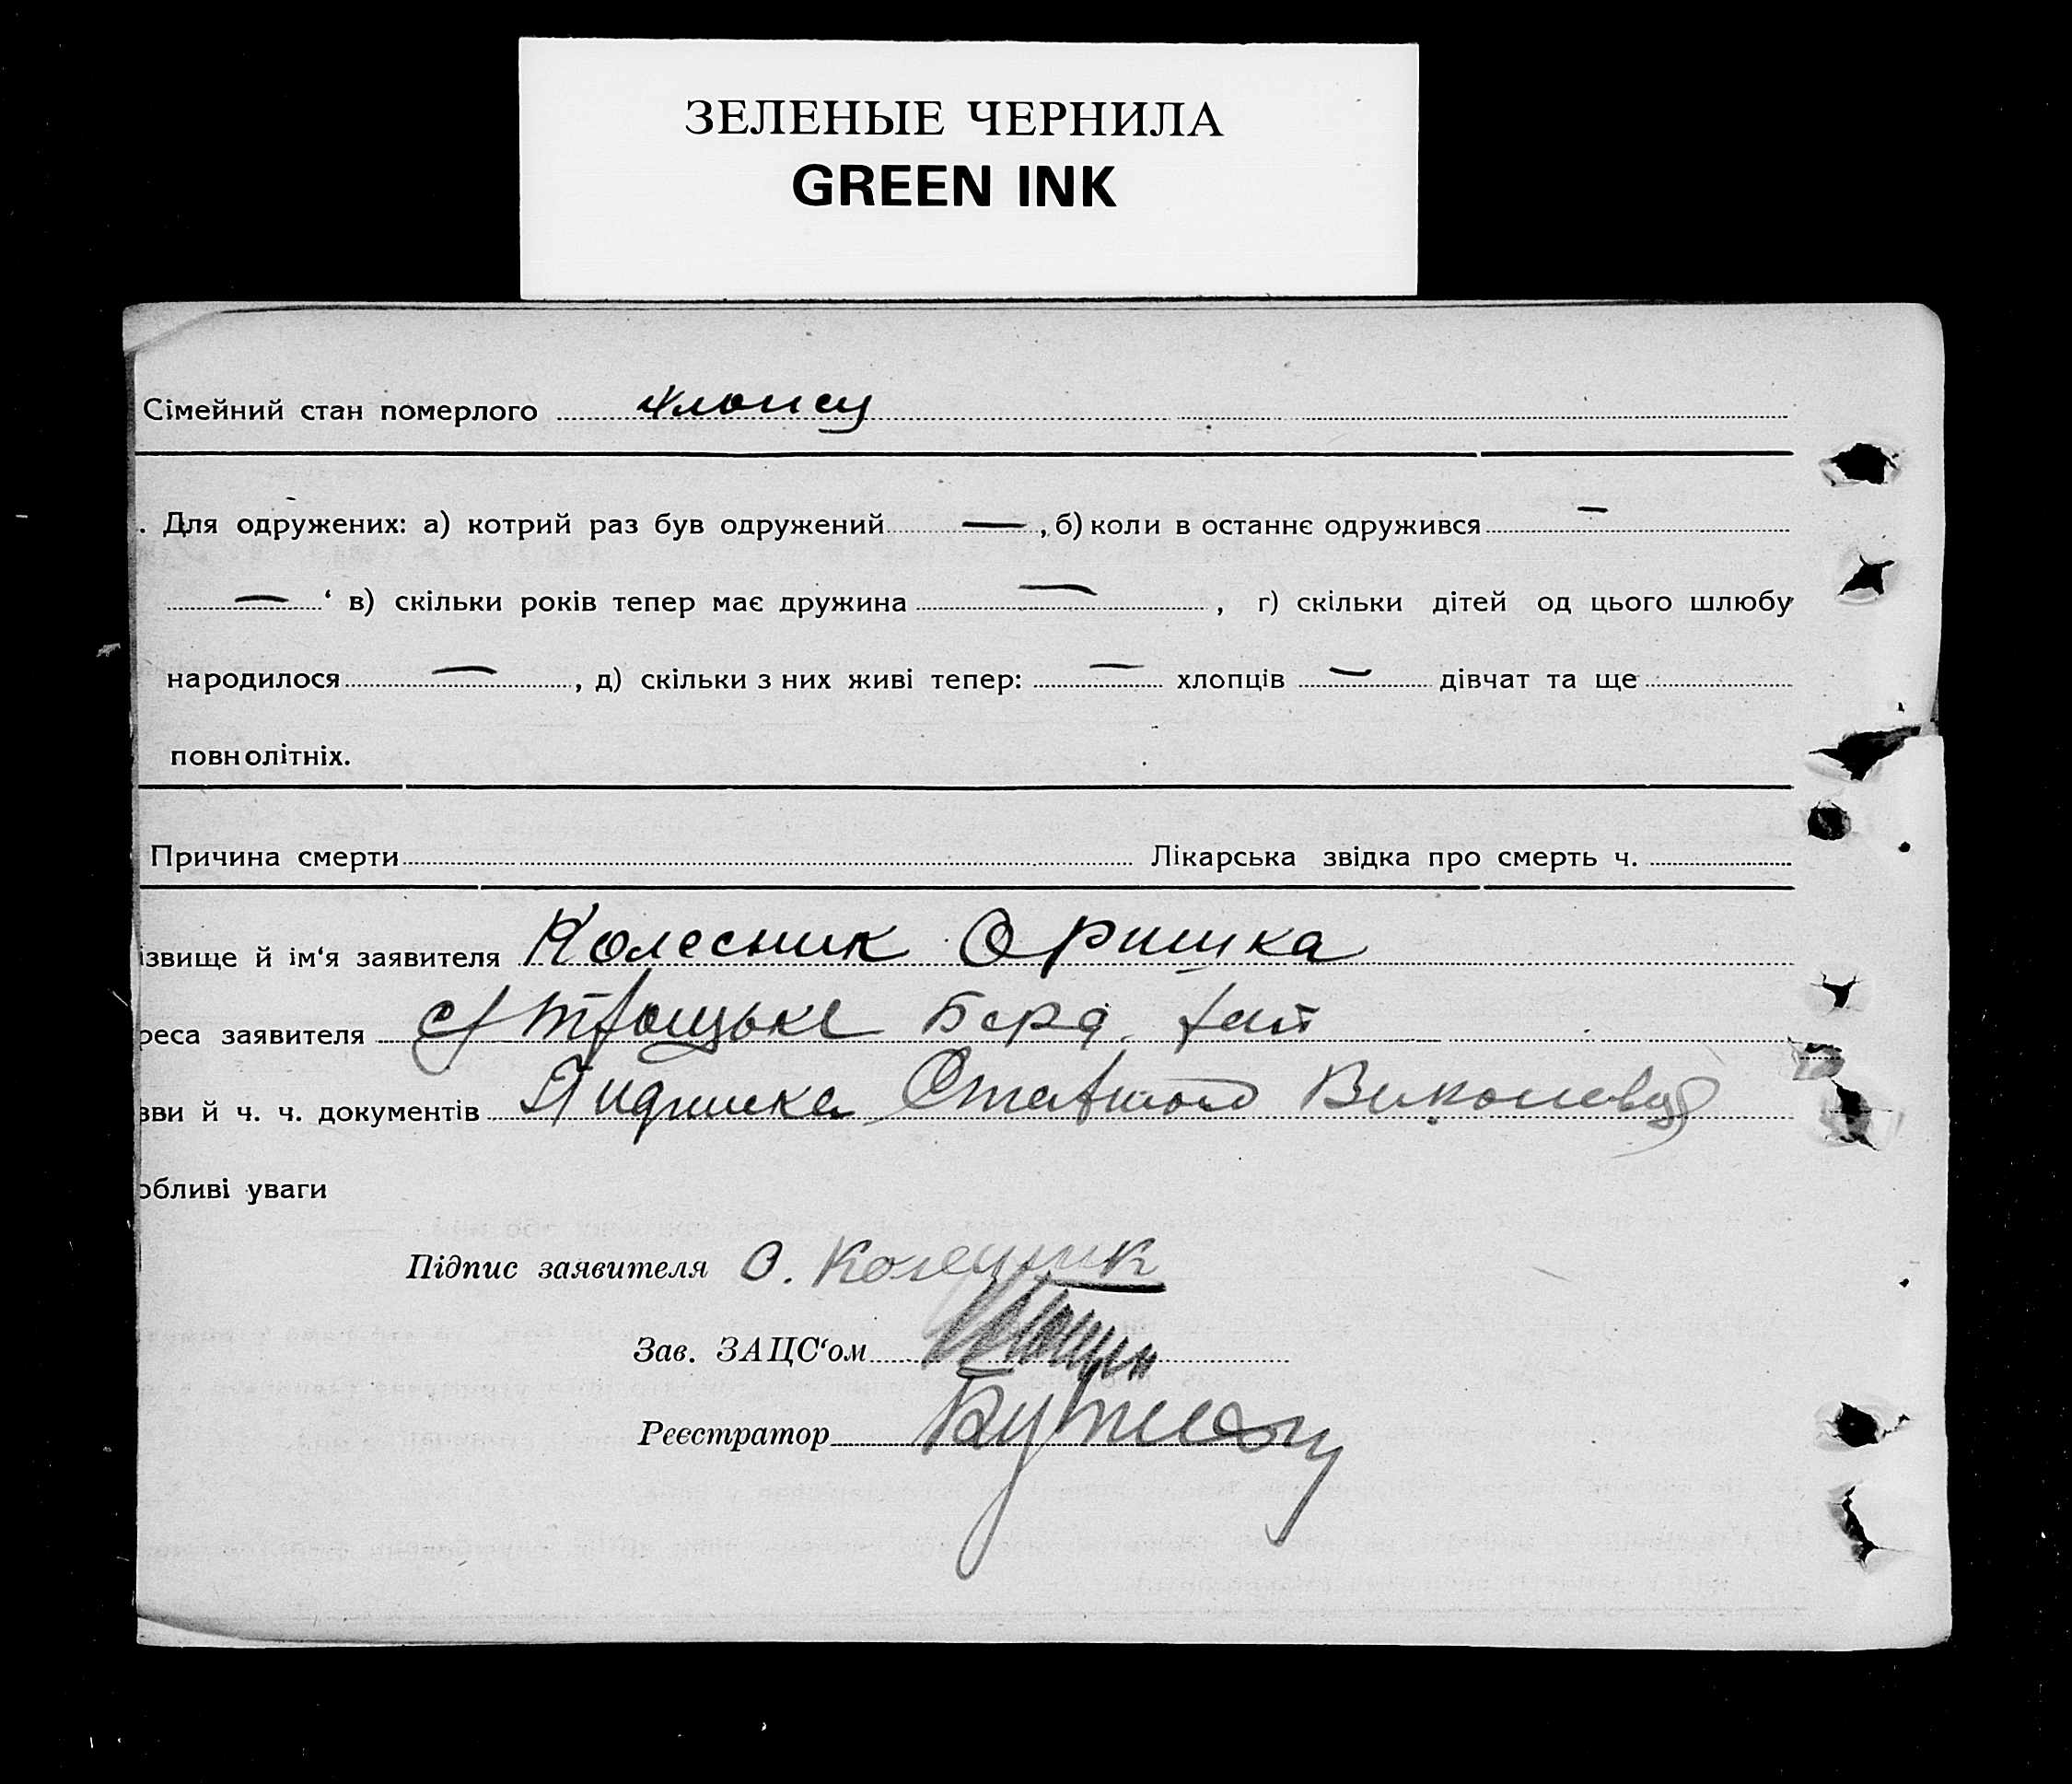 ЗЕЛЕНЫЕ ЧЕРНИЛА
GREEN INK
Сімейний стан померлого
. Для одружених: а) котрий раз був одружений — , б) коли в останнє одружився —
— ‘ в) скільки років тепер має дружина — , г) скільки дітей од цього шлюбу
народилося — , д) скільки з них живі тепер: — хлопців — дівчат та ще
повнолітніх.
Причина смерти Лікарська звідка про смерть ч.
ізвище й ім‘я заявителя Колесник Оришка
реса заявителя с/ Троцьке Берд.
зви й ч. ч. документів Підписка
обливі уваги
Підпис заявителя О. Колесник
Зав. ЗАЦС‘ом
Реєстратор